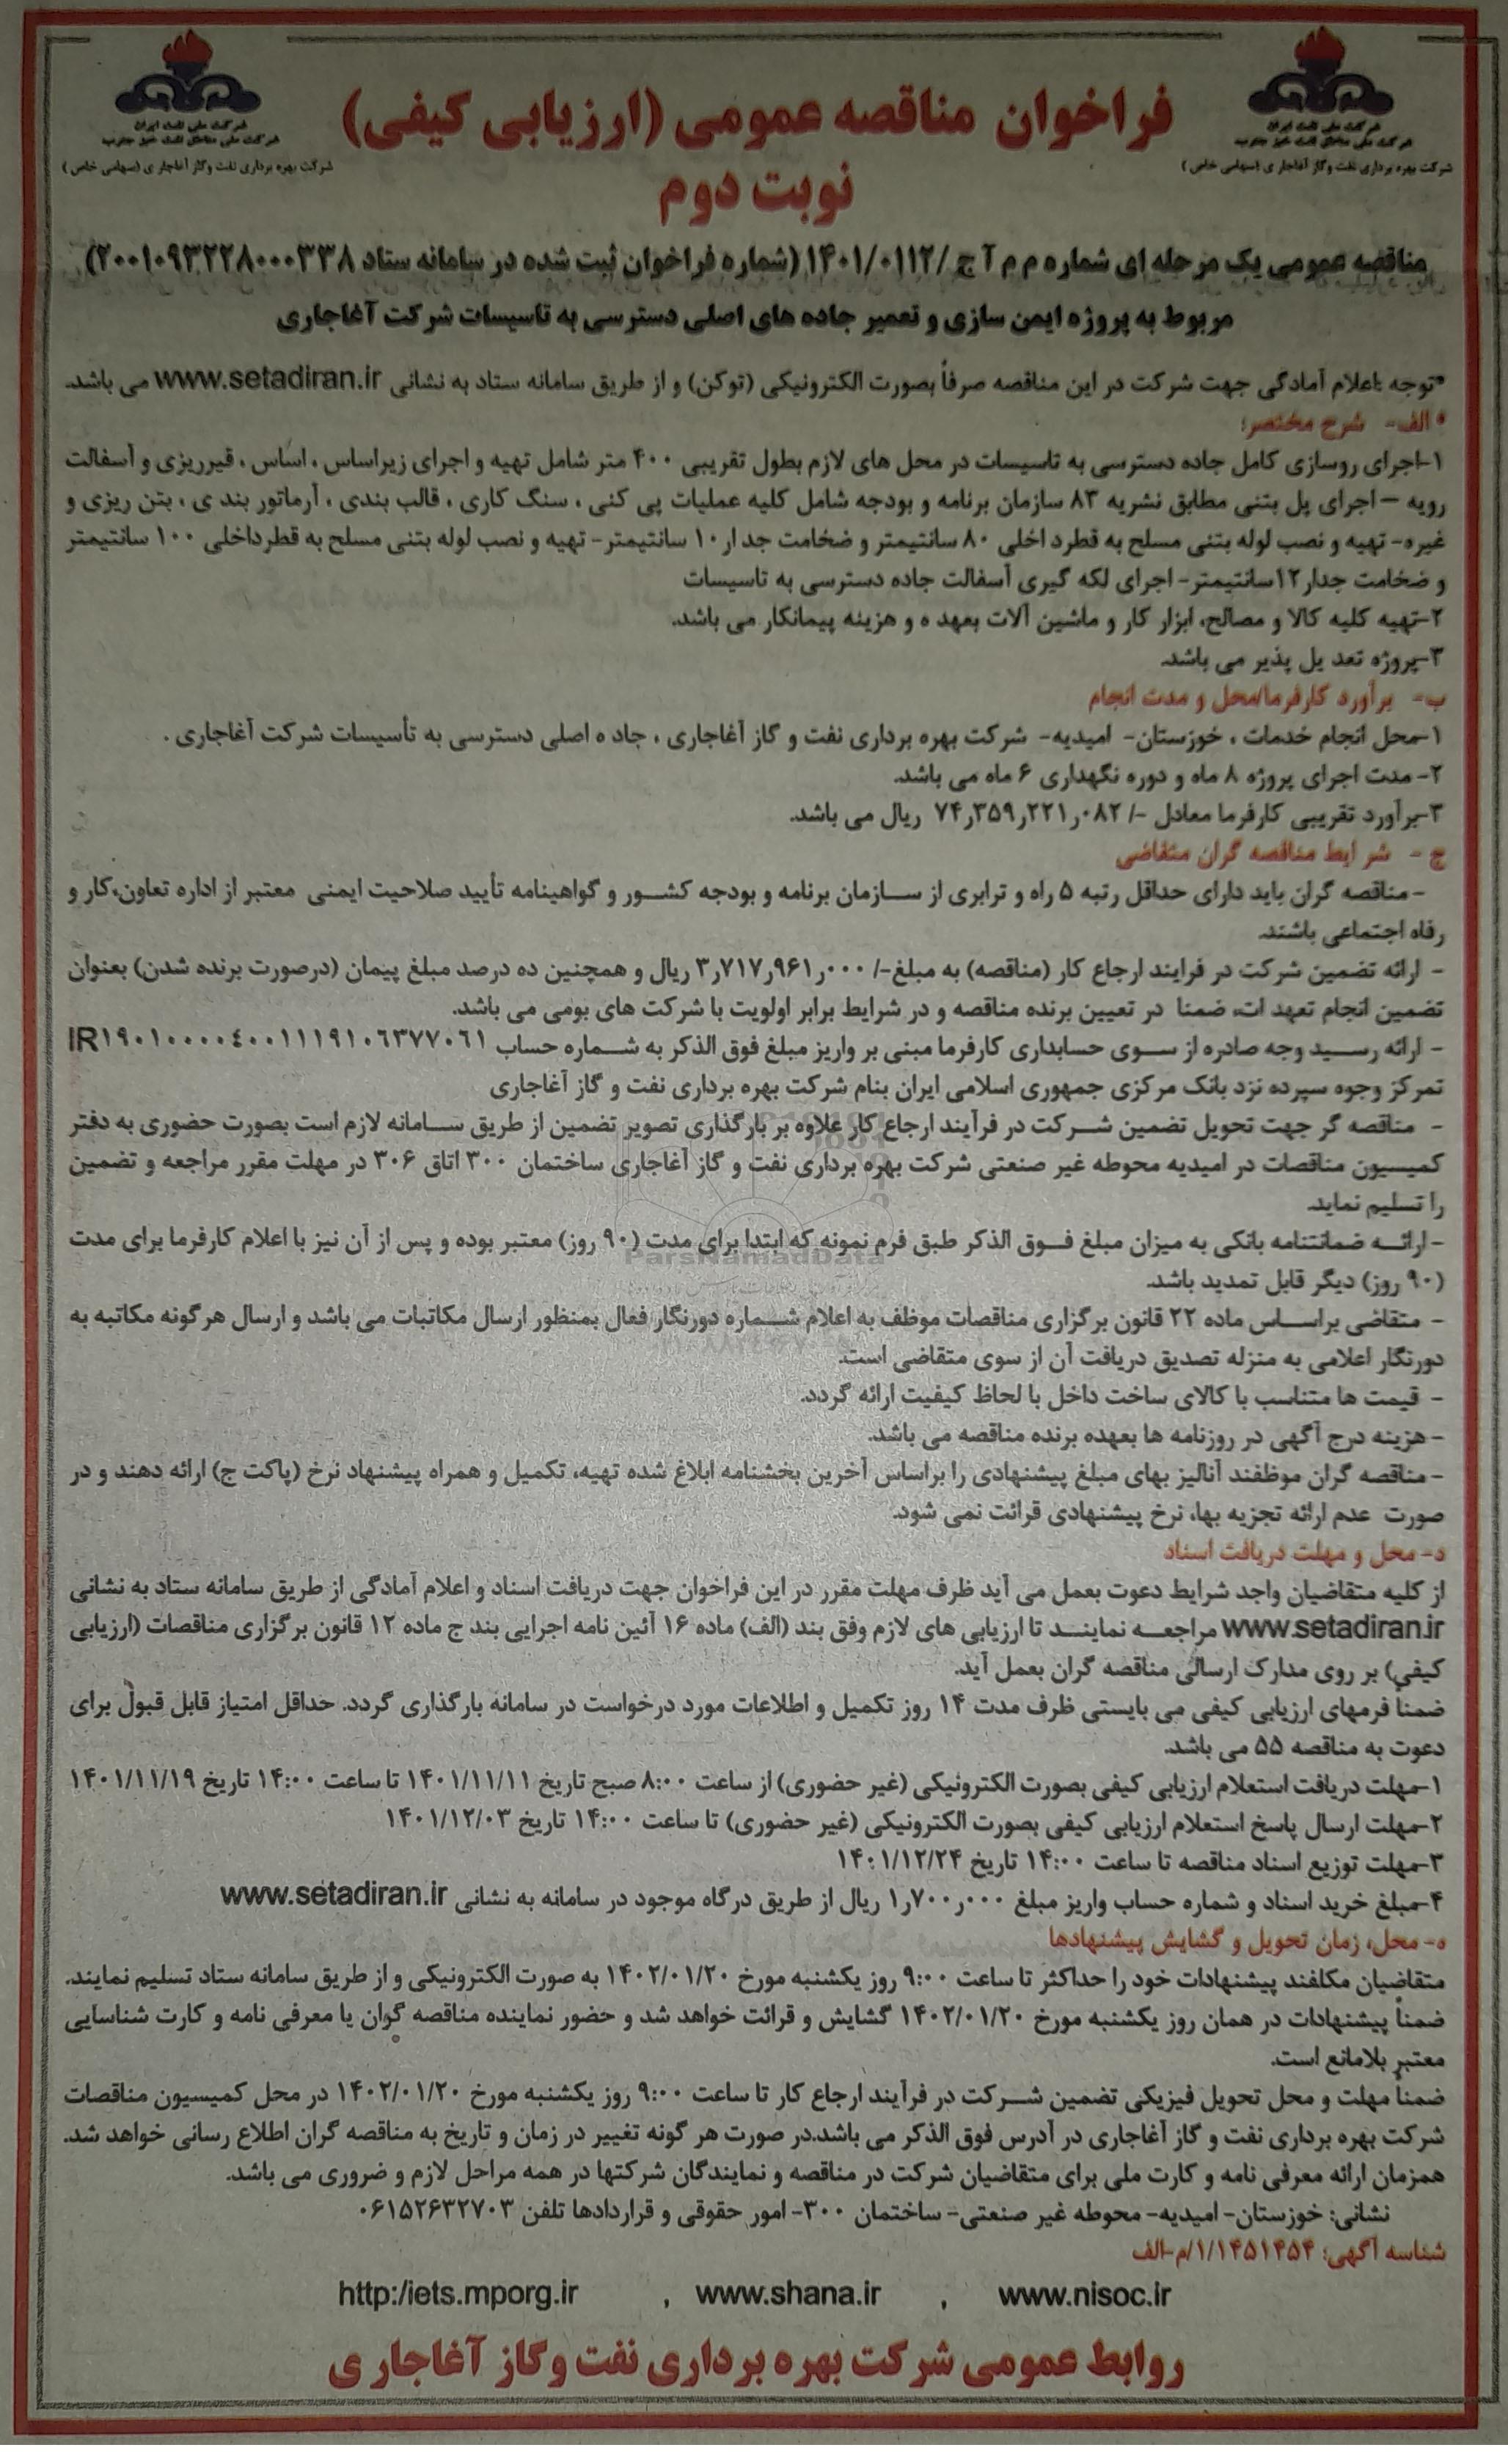 شرکت ملی نفت ایران
شرکت ملی مناطق نفت خیز جنوب
شرکت بهره برداری نفت وگاز آغاجاری (سهامی خاص)
شرکت ملی نفت ایران
شرکت ملی مناطق نفت خیز جنوب
شرکت بهره برداری نفت وگاز آغاجاری (سهامی خاص)
فراخوان مناقصه عمومی (ارزیابی کیفی)
نوبت دوم
مناقصه عمومی یک مرحله ای شماره م م آ ج /۱۴۰۱/۰۱۱۲ (شماره فراخوان ثبت شده در سامانه ستاد ۲۰۰۱۰۹۳۲۲۸۰۰۰۳۳۸)
مربوط به پروژه ایمن سازی و تعمیر جاده های اصلی دسترسی به تاسیسات شرکت آغاجاری
*توجه :اعلام آمادگی جهت شرکت در این مناقصه صرفاً بصورت الکترونیکی (توکن) و از طریق سامانه ستاد به نشانی www.setadiran.ir می باشد.
* الف- شرح مختصر:
۱-اجرای روسازی کامل جاده دسترسی به تاسیسات در محل های لازم بطول تقریبی ۴۰۰ متر شامل تهیه و اجرای زیراساس ، اساس ، قیرریزی و آسفالت
رویه – اجرای پل بتنی مطابق نشریه ۸۳ سازمان برنامه و بودجه شامل کلیه عملیات پی کنی ، سنگ کاری ، قالب بندی ، آرماتور بند ی ، بتن ریزی و
غیره- تهیه و نصب لوله بتنی مسلح به قطرد اخلی ۸۰ سانتیمتر و ضخامت جد ار۱۰ سانتیمتر- تهیه و نصب لوله بتنی مسلح به قطرداخلی ۱۰۰ سانتیمتر
و ضخامت جدار۱۲سانتیمتر- اجرای لکه گیری آسفالت جاده دسترسی به تاسیسات
۲-تهیه کلیه کالا و مصالح، ابزار کار و ماشین آلات بعهد ه و هزینه پیمانکار می باشد.
۳-پروژه تعد یل پذیر می باشد.
ب- برآورد کارفرما/محل و مدت انجام
۱-محل انجام خدمات ، خوزستان- امیدیه- شرکت بهره برداری نفت و گاز آغاجاری ، جاد ه اصلی دسترسی به تأسیسات شرکت آغاجاری .
۲- مدت اجرای پروژه ۸ ماه و دوره نگهداری ۶ ماه می باشد.
۳-برآورد تقریبی کارفرما معادل -/ ۷۴٫۳۵۹٫۲۲۱٫۰۸۲ ریال می باشد.
ج - شر ایط مناقصه گران متقاضی
-مناقصه گران باید دارای حداقل رتبه ۵ راه و ترابری از سـازمان برنامه و بودجه کشـور و گواهینامه تأیید صلاحیت ایمنی معتبر از اداره تعاون،کار و
رفاه اجتماعی باشند.
- ارائه تضمین شرکت در فرایند ارجاع کار (مناقصه) به مبلغ-/ ۳٫۷۱۷٫۹۶۱٫۰۰۰ ریال و همچنین ده درصد مبلغ پیمان (درصورت برنده شدن) بعنوان
تضمین انجام تعهد ات، ضمنا در تعیین برنده مناقصه و در شرایط برابر اولویت با شرکت های بومی می باشد.
- ارائه رسـید وجه صادره از سـوی حسابداری کارفرما مبنی بر واریز مبلغ فوق الذکر به شـماره حساب IR۱۹۰۱۰۰۰۰٤۰۰۱۱۱۹۱۰٦۳۷۷۰٦۱
تمرکز وجوه سپرده نزد بانک مرکزی جمهوری اسلامی ایران بنام شرکت بهره برداری نفت و گاز آغاجاری
- مناقصه گر جهت تحویل تضمین شـرکت در فرآیند ارجاع کار علاوه بر بارگذاری تصویر تضمین از طریق سـامانه لازم است بصورت حضوری به دفتر
کمیسیون مناقصات در امیدیه محوطه غیر صنعتی شرکت بهره برداری نفت و گاز آغاجاری ساختمان ۳۰۰ اتاق ۳۰۶ در مهلت مقرر مراجعه و تضمین
را تسلیم نماید.
ParsNamadData
- ارائـه ضمانتنامه بانکی به میزان مبلغ فـوق الذکر طبق فرم نمونه که ابتدا برای مدت (۹۰ روز) معتبر بوده و پس از آن نیز با اعلام کارفرما برای مدت
(۹۰ روز) دیگر قابل تمدید باشد.
- متقاضی براسـاس ماده ۲۲ قانون برگزاری مناقصات موظف به اعلام شـماره دورنگار فعال بمنظور ارسال مکاتبات می باشد و ارسال هرگونه مکاتبه به
دورنگار اعلامی به منزله تصدیق دریافت آن از سوی متقاضی است.
- قیمت ها متناسب با کالای ساخت داخل با لحاظ کیفیت ارائه گردد.
- هزینه درج آگهی در روزنامه ها بعهده برنده مناقصه می باشد.
- مناقصه گران موظفند آنالیز بهای مبلغ پیشنهادی را براساس آخرین بخشنامه ابلاغ شده تهیه، تکمیل و همراه پیشنهاد نرخ (پاکت ج) ارائه دهند و در
صورت عدم ارائه تجزیه بها، نرخ پیشنهادی قرائت نمی شود.
د- محل و مهلت دریافت اسناد
از کلیه متقاضیان واجد شرایط دعوت بعمل می آید ظرف مهلت مقرر در این فراخوان جهت دریافت اسناد و اعلام آمادگی از طریق سامانه ستاد به نشانی
www.setadiran.ir مراجعـه نماینـد تا ارزیابی های لازم وفق بند (الف) ماده ۱۶ آئین نامه اجرایی بند ج ماده ۱۲ قانون برگزاری مناقصات (ارزیابی
کیفی) بر روی مدارک ارسالی مناقصه گران بعمل آید.
ضمناً فرمهای ارزیابی کیفی می بایستی ظرف مدت ۱۴ روز تکمیل و اطلاعات مورد درخواست در سامانه بارگذاری گردد. حداقل امتیاز قابل قبول برای
دعوت به مناقصه ۵۵ می باشد.
۱-مهلت دریافت استعلام ارزیابی کیفی بصورت الکترونیکی (غیر حضوری) از ساعت ۸:۰۰ صبح تاریخ ۱۴۰۱/۱۱/۱۱ تا ساعت ۱۴:۰۰ تاریخ ۱۴۰۱/۱۱/۱۹
۲-مهلت ارسال پاسخ استعلام ارزیابی کیفی بصورت الکترونیکی (غیر حضوری) تا ساعت ۱۴:۰۰ تاریخ ۱۴۰۱/۱۲/۰۳
۳-مهلت توزیع اسناد مناقصه تا ساعت ۱۴:۰۰ تاریخ ۱۴۰۱/۱۲/۲۴
۴-مبلغ خرید اسناد و شماره حساب واریز مبلغ ۱٫۷۰۰٫۰۰۰ ریال از طریق درگاه موجود در سامانه به نشانی www.setadiran.ir
ه- محل، زمان تحویل و گشایش پیشنهادها
متقاضیان مکلفند پیشنهادات خود را حداکثر تا ساعت ۹:۰۰ روز یکشنبه مورخ ۱۴۰۲/۰۱/۲۰ به صورت الکترونیکی و از طریق سامانه ستاد تسلیم نمایند.
ضمناً پیشنهادات در همان روز یکشنبه مورخ ۱۴۰۲/۰۱/۲۰ گشایش و قرائت خواهد شد و حضور نماینده مناقصه گران با معرفی نامه و کارت شناسایی
معتبر بلامانع است.
ضمناً مهلت و محل تحویل فیزیکی تضمین شـرکت در فرآیند ارجاع کار تا ساعت ۹:۰۰ روز یکشنبه مورخ ۱۴۰۲/۰۱/۲۰ در محل کمیسیون مناقصات
شرکت بهره برداری نفت و گاز آغاجاری در آدرس فوق الذکر می باشد.در صورت هر گونه تغییر در زمان و تاریخ به مناقصه گران اطلاع رسانی خواهد شد.
همزمان ارائه معرفی نامه و کارت ملی برای متقاضیان شرکت در مناقصه و نمایندگان شرکتها در همه مراحل لازم و ضروری می باشد.
نشانی: خوزستان- امیدیه- محوطه غیر صنعتی- ساختمان ۳۰۰- امور حقوقی و قراردادها تلفن ۰۶۱۵۲۶۳۲۷۰۳
شناسه آگهی: ۱/۱۴۵۱۴۵۴/م-الف
www.nisoc.ir , www.shana.ir , http:/iets.mporg.ir
روابط عمومی شرکت بهره برداری نفت وگاز آغاجار ی